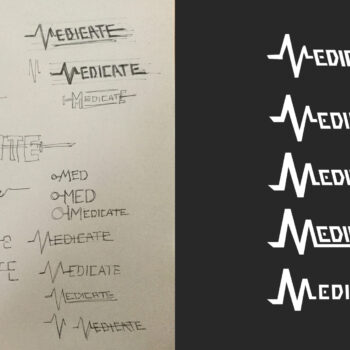 MEDICATE
MEDICATE
MEDICATE
TE
MED
MED
MEDICATE
MEDICATE
MEDICATE
MEDICATE
MEDICATE
MEDIC
MEDIC
MEDIC
MEDIC
MEDIC